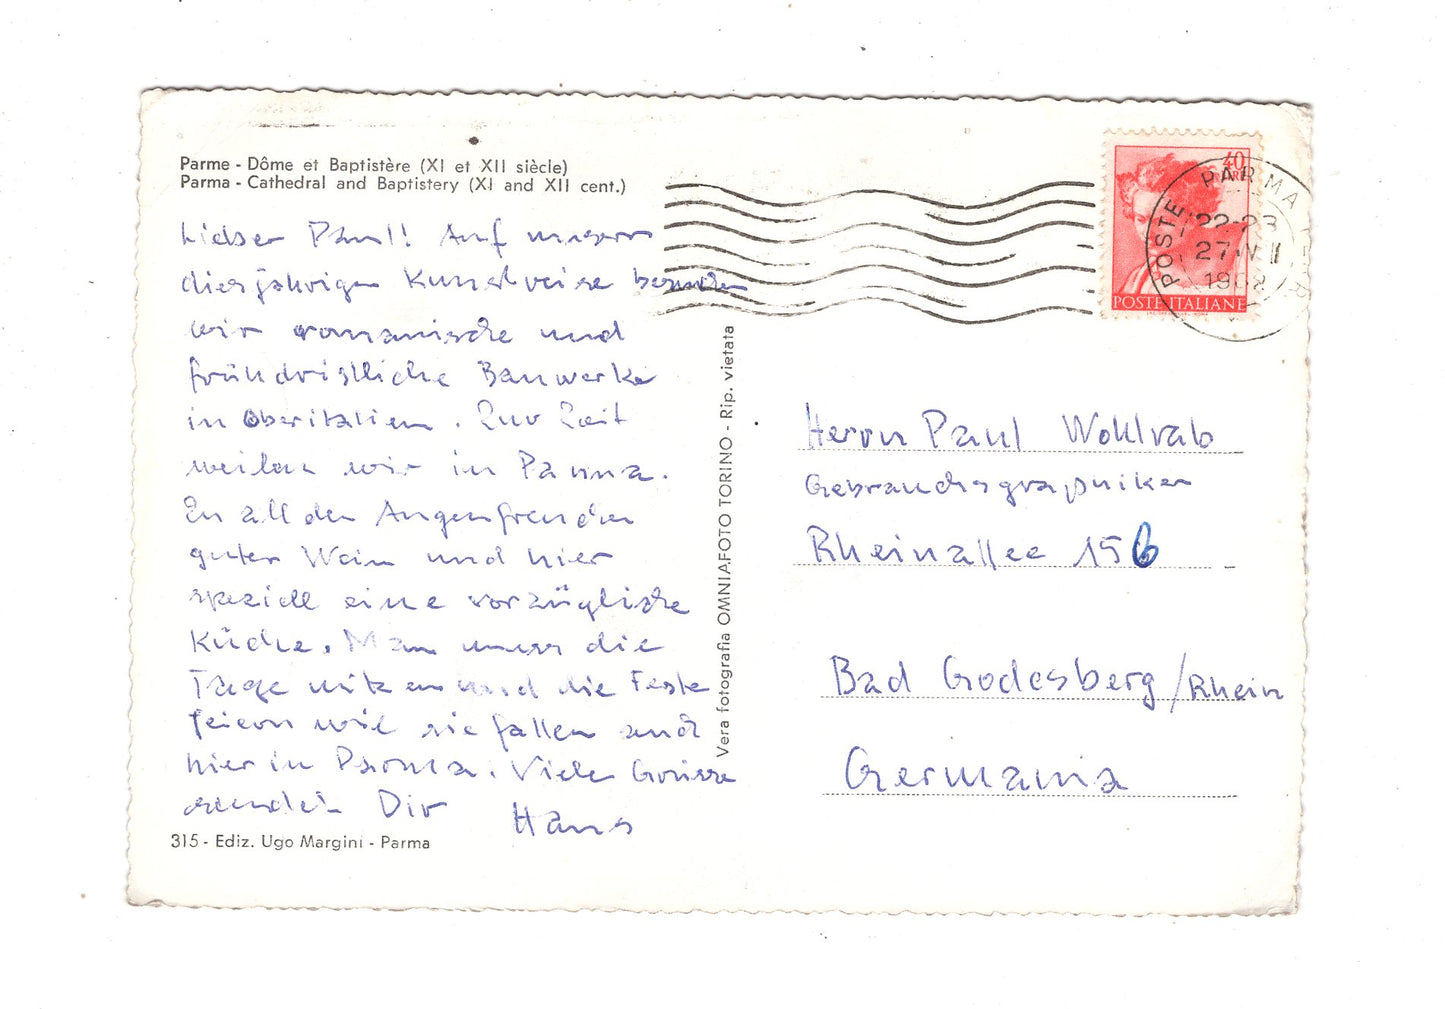 Parme - Dôme et Baptistère (XI et XII siècle)
Parma - Cathedral and Baptistery (XI and XII cent.)
Lieber Paul! Auf unserer
diesjährigen Kunstreise besuchen
wir romanische und
frühchristliche Bauwerke
in Oberitalien. Zur Zeit
weilen wir in Parma.
Zu all den Augenfreuden
guten Wein und hier
speziell eine vorzügliche
Küche. Man muss die
Tage nützen und die Feste
feiern wie sie fallen und
hier in Parma. Viele Grüsse
sendet Dir Hans
315 - Ediz. Ugo Margini - Parma
Vera fotografia OMNIAFOTO TORINO - Rip. vietata
40
LIRE
POSTE ITALIANE
POSTE PARMA FERR
22-23
27 IV
1962
Herrn Paul Wohlrab
Gebrauchsgraphiker
Rheinallee 156
Bad Godesberg/Rhein
Germania